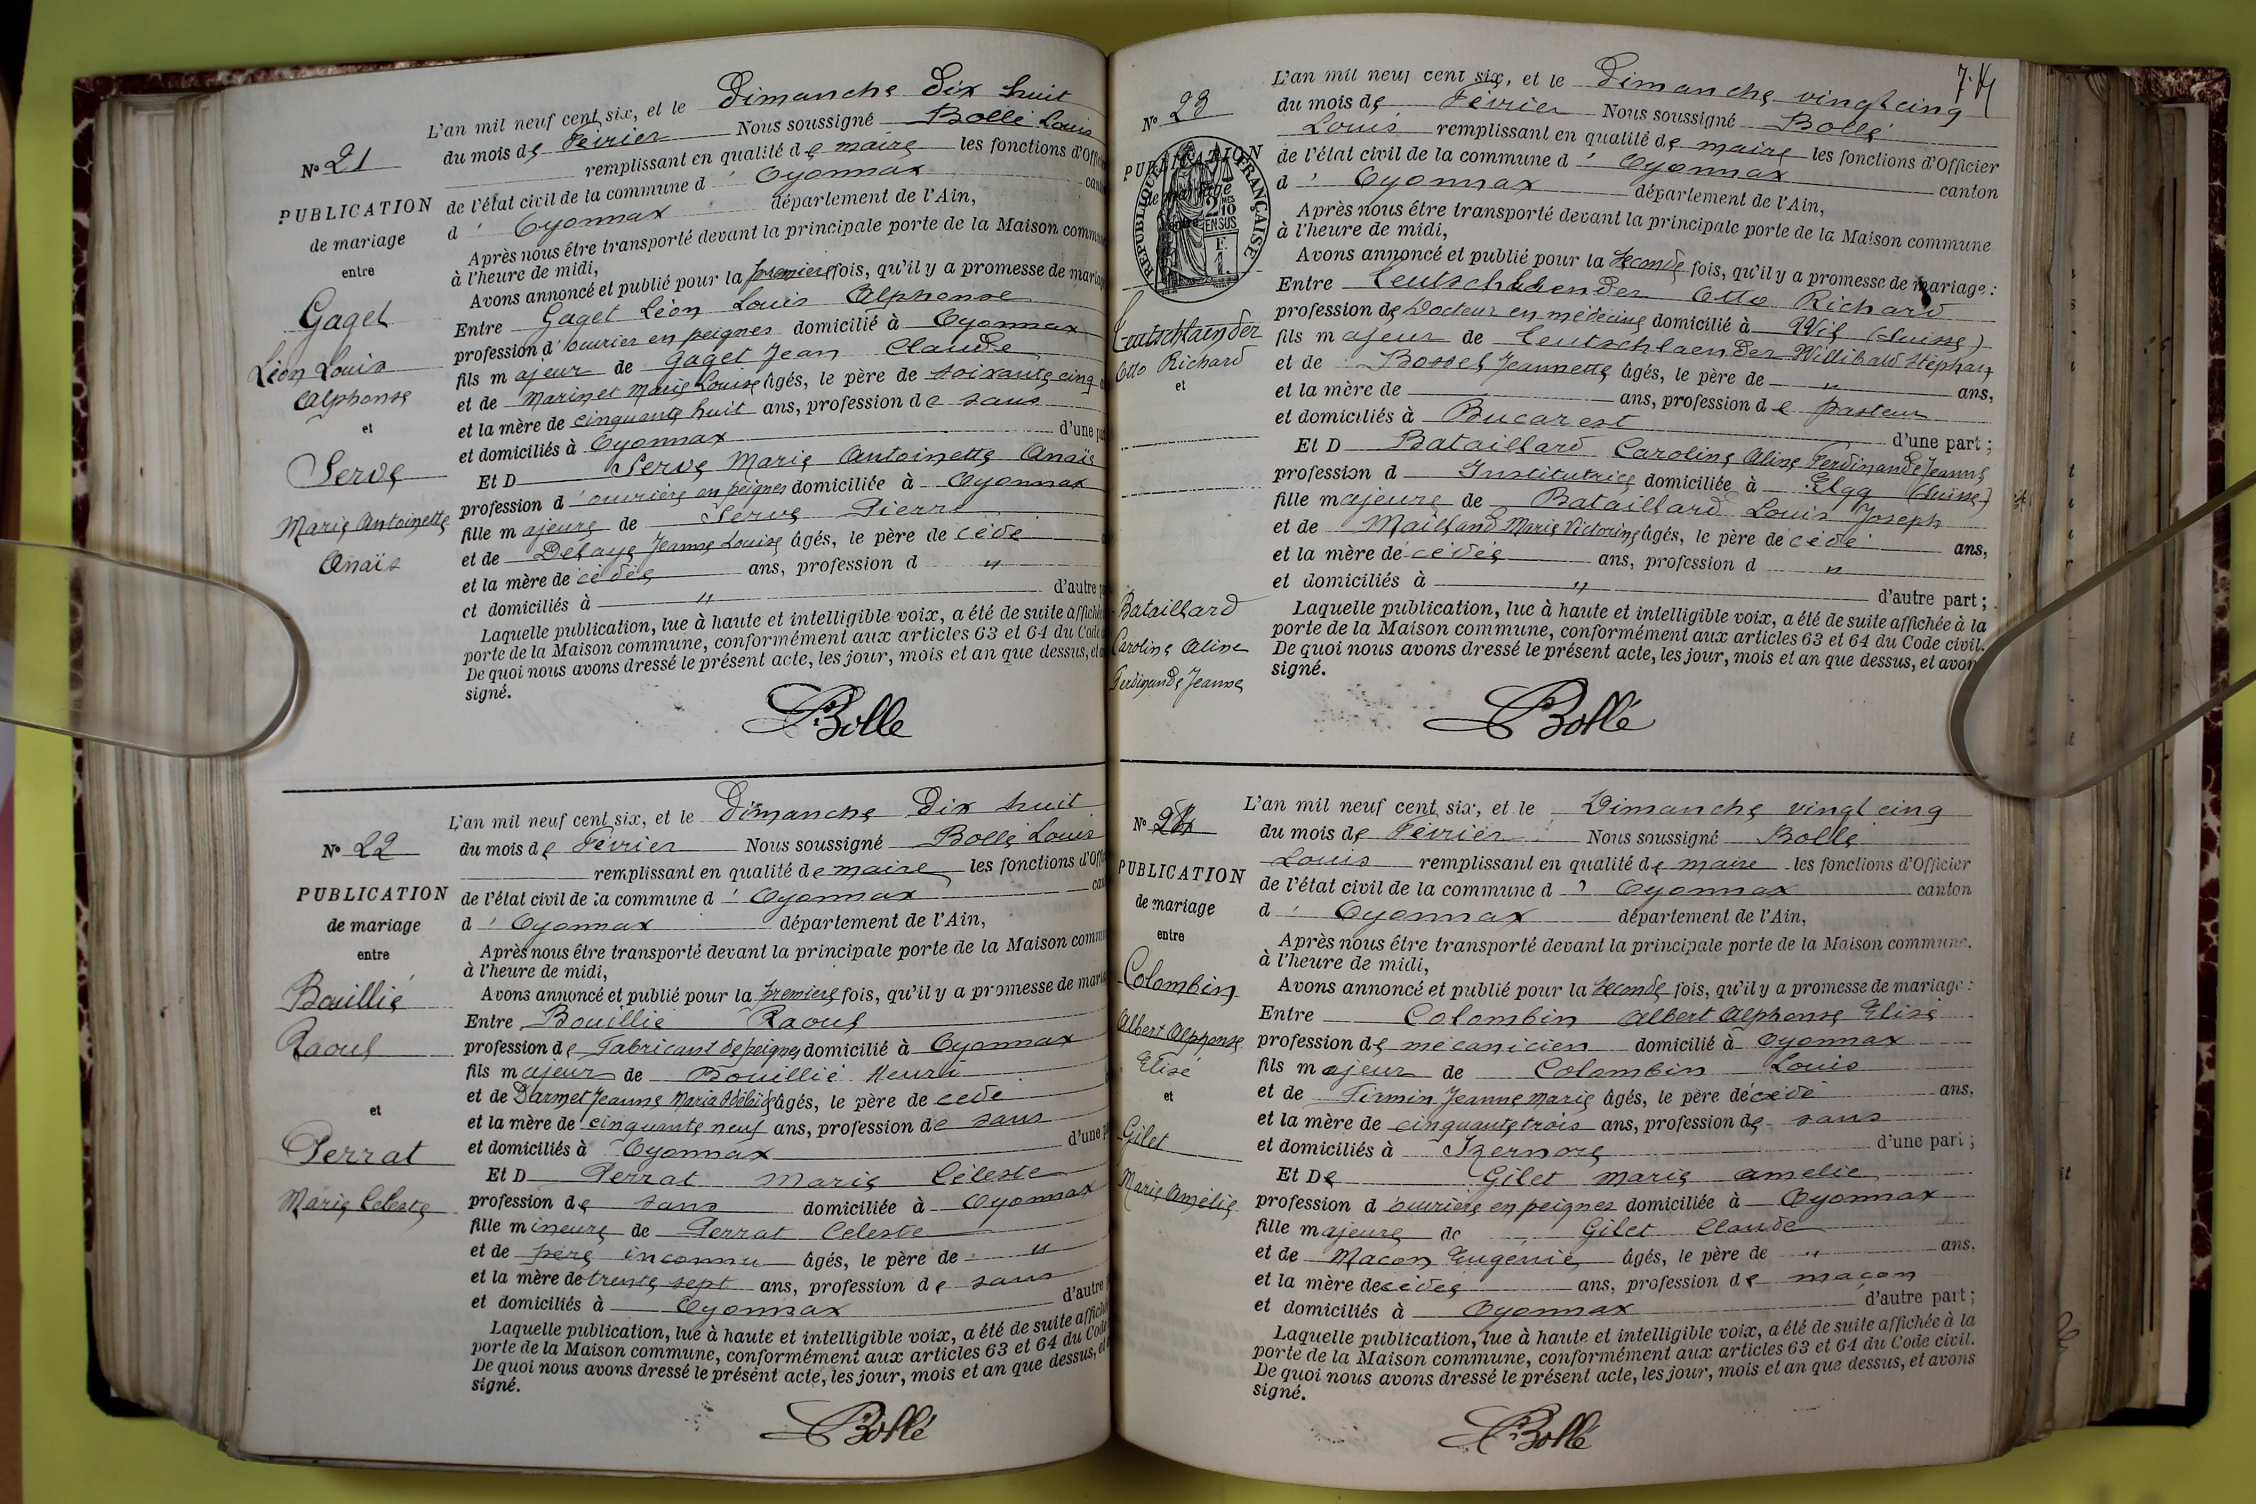 L'an mil neuf cent six, et le Dimanche Dix huit
du mois de Février Nous soussigné Bollé Louis
remplissant en qualité de maire les fonctions d'Offi
de l'état civil de la commune d' Oyonnax cant
d' Oyonnax département de l'Ain,
Après nous être transporté devant la principale porte de la Maison commun
à l'heure de midi,
Avons annoncé et publié pour la première fois, qu'il y a promesse de mariag
Entre Gaget Léon Louis Alphonse
profession d' ouvrier en peignes domicilié à Oyonnax
fils majeur de Gaget Jean Claude
et de Marinet Marie Louise âgés, le père de soixante cinq
et la mère de cinquante huit ans, profession de sans
et domiciliés à Oyonnax d'une pa
Et D Serve Marie Antoinette Anaïs
profession d' ouvrière en peignes domiciliée à Oyonnax
fille majeure de Serve Pierre
et de Delaye Jeanne Louise âgés, le père de cédé
et la mère de cédée ans, profession d "
et domiciliés à " d'autre p
Laquelle publication, lue à haute et intelligible voix, a été de suite affichée
porte de la Maison commune, conformément aux articles 63 et 64 du Code
De quoi nous avons dressé le présent acte, les jour, mois et an que dessus, et
signé.
Bollé
N° 21
PUBLICATION
de mariage
entre
Gaget
Léon Louis
Alphonse
et
Serve
Marie Antoinette
Anaïs
L'an mil neuf cent six, et le Dimanche Dix huit
du mois de Février Nous soussigné Bollé Louis
remplissant en qualité de maire les fonctions d'Offi
de l'état civil de la commune d' Oyonnax can
d' Oyonnax département de l'Ain,
Après nous être transporté devant la principale porte de la Maison commu
à l'heure de midi,
Avons annoncé et publié pour la première fois, qu'il y a promesse de maria
Entre Bouillié Raoul
profession de Fabricant de peignes domicilié à Oyonnax
fils majeur de Bouillié Henri
et de Darmet Jeanne Maria Adélaïde âgés, le père de cédé
et la mère de cinquante neuf ans, profession de sans
et domiciliés à Oyonnax d'une p
Et D Perrat Marie Céleste
profession de sans domiciliée à Oyonnax
fille mineure de Perrat Celeste
et de père inconnu âgés, le père de "
et la mère de trente sept ans, profession de sans
et domiciliés à Oyonnax d'autre
Laquelle publication, lue à haute et intelligible voix, a été de suite affiché
porte de la Maison commune, conformément aux articles 63 et 64 du Code
De quoi nous avons dressé le présent acte, les jour, mois et an que dessus, et
signé.
Bollé
N° 22
PUBLICATION
de mariage
entre
Bouillié
Raoul
et
Perrat
Marie Celeste
L'an mil neuf cent six, et le Dimanche vingt cinq
du mois de Février Nous soussigné Bollé
Louis remplissant en qualité de maire les fonctions d'Officier
de l'état civil de la commune d' Oyonnax canton
d' Oyonnax département de l'Ain,
Après nous être transporté devant la principale porte de la Maison commune
à l'heure de midi,
Avons annoncé et publié pour la seconde fois, qu'il y a promesse de mariage :
Entre Teutschlaender Otto Richard
profession de Docteur en médecine domicilié à Wil (Suisse)
fils majeur de Teutschlaender Willibald Stephan
et de Bossel Jeannette âgés, le père de " ans,
et la mère de ans, profession de pasteur
et domiciliés à Bucarest d'une part ;
Et D Bataillard Caroline Aline Ferdinande Jeanne
profession d Institutrice domiciliée à Elgg (Suisse)
fille majeure de Bataillard Louis Joseph
et de Mailland Marie Victorine âgés, le père de cédé ans,
et la mère de cédée ans, profession d "
et domiciliés à " d'autre part ;
Laquelle publication, lue à haute et intelligible voix, a été de suite affichée à la
porte de la Maison commune, conformément aux articles 63 et 64 du Code civil.
De quoi nous avons dressé le présent acte, les jour, mois et an que dessus, et avon
signé.
Bollé
N° 23
PUBLICATION
de mariage
entre
RÉPUBLIQUE FRANÇAISE
2 MES
10
EN SUS
F.
1.
Teutschlaender
Otto Richard
et
Bataillard
Caroline Aline
Ferdinande Jeanne
L'an mil neuf cent six, et le Dimanche vingt cinq
du mois de Février Nous soussigné Bollé
Louis remplissant en qualité de maire les fonctions d'Officier
de l'état civil de la commune d' Oyonnax canton
d' Oyonnax département de l'Ain,
Après nous être transporté devant la principale porte de la Maison commune.
à l'heure de midi,
Avons annoncé et publié pour la seconde fois, qu'il y a promesse de mariage :
Entre Colombin Albert Alphonse Elisé
profession de mécanicien domicilié à Oyonnax
fils majeur de Colombin Louis
et de Firmin Jeanne Marie âgés, le père décédé ans,
et la mère de cinquante trois ans, profession de sans
et domiciliés à Izernore d'une part ;
Et De Gilet Marie Amélie
profession d ouvrière en peignes domiciliée à Oyonnax
fille majeure de Gilet Claude
et de Macon Eugénie âgés, le père de " ans,
et la mère decédée ans, profession de maçon
et domiciliés à Oyonnax d'autre part ;
Laquelle publication, lue à haute et intelligible voix, a été de suite affichée à la
porte de la Maison commune, conformément aux articles 63 et 64 du Code civil.
De quoi nous avons dressé le présent acte, les jour, mois et an que dessus, et avons
signé.
Bollé
N° 24
PUBLICATION
de mariage
entre
Colombin
Albert Alphonse
Elisé
et
Gilet
Marie Amélie